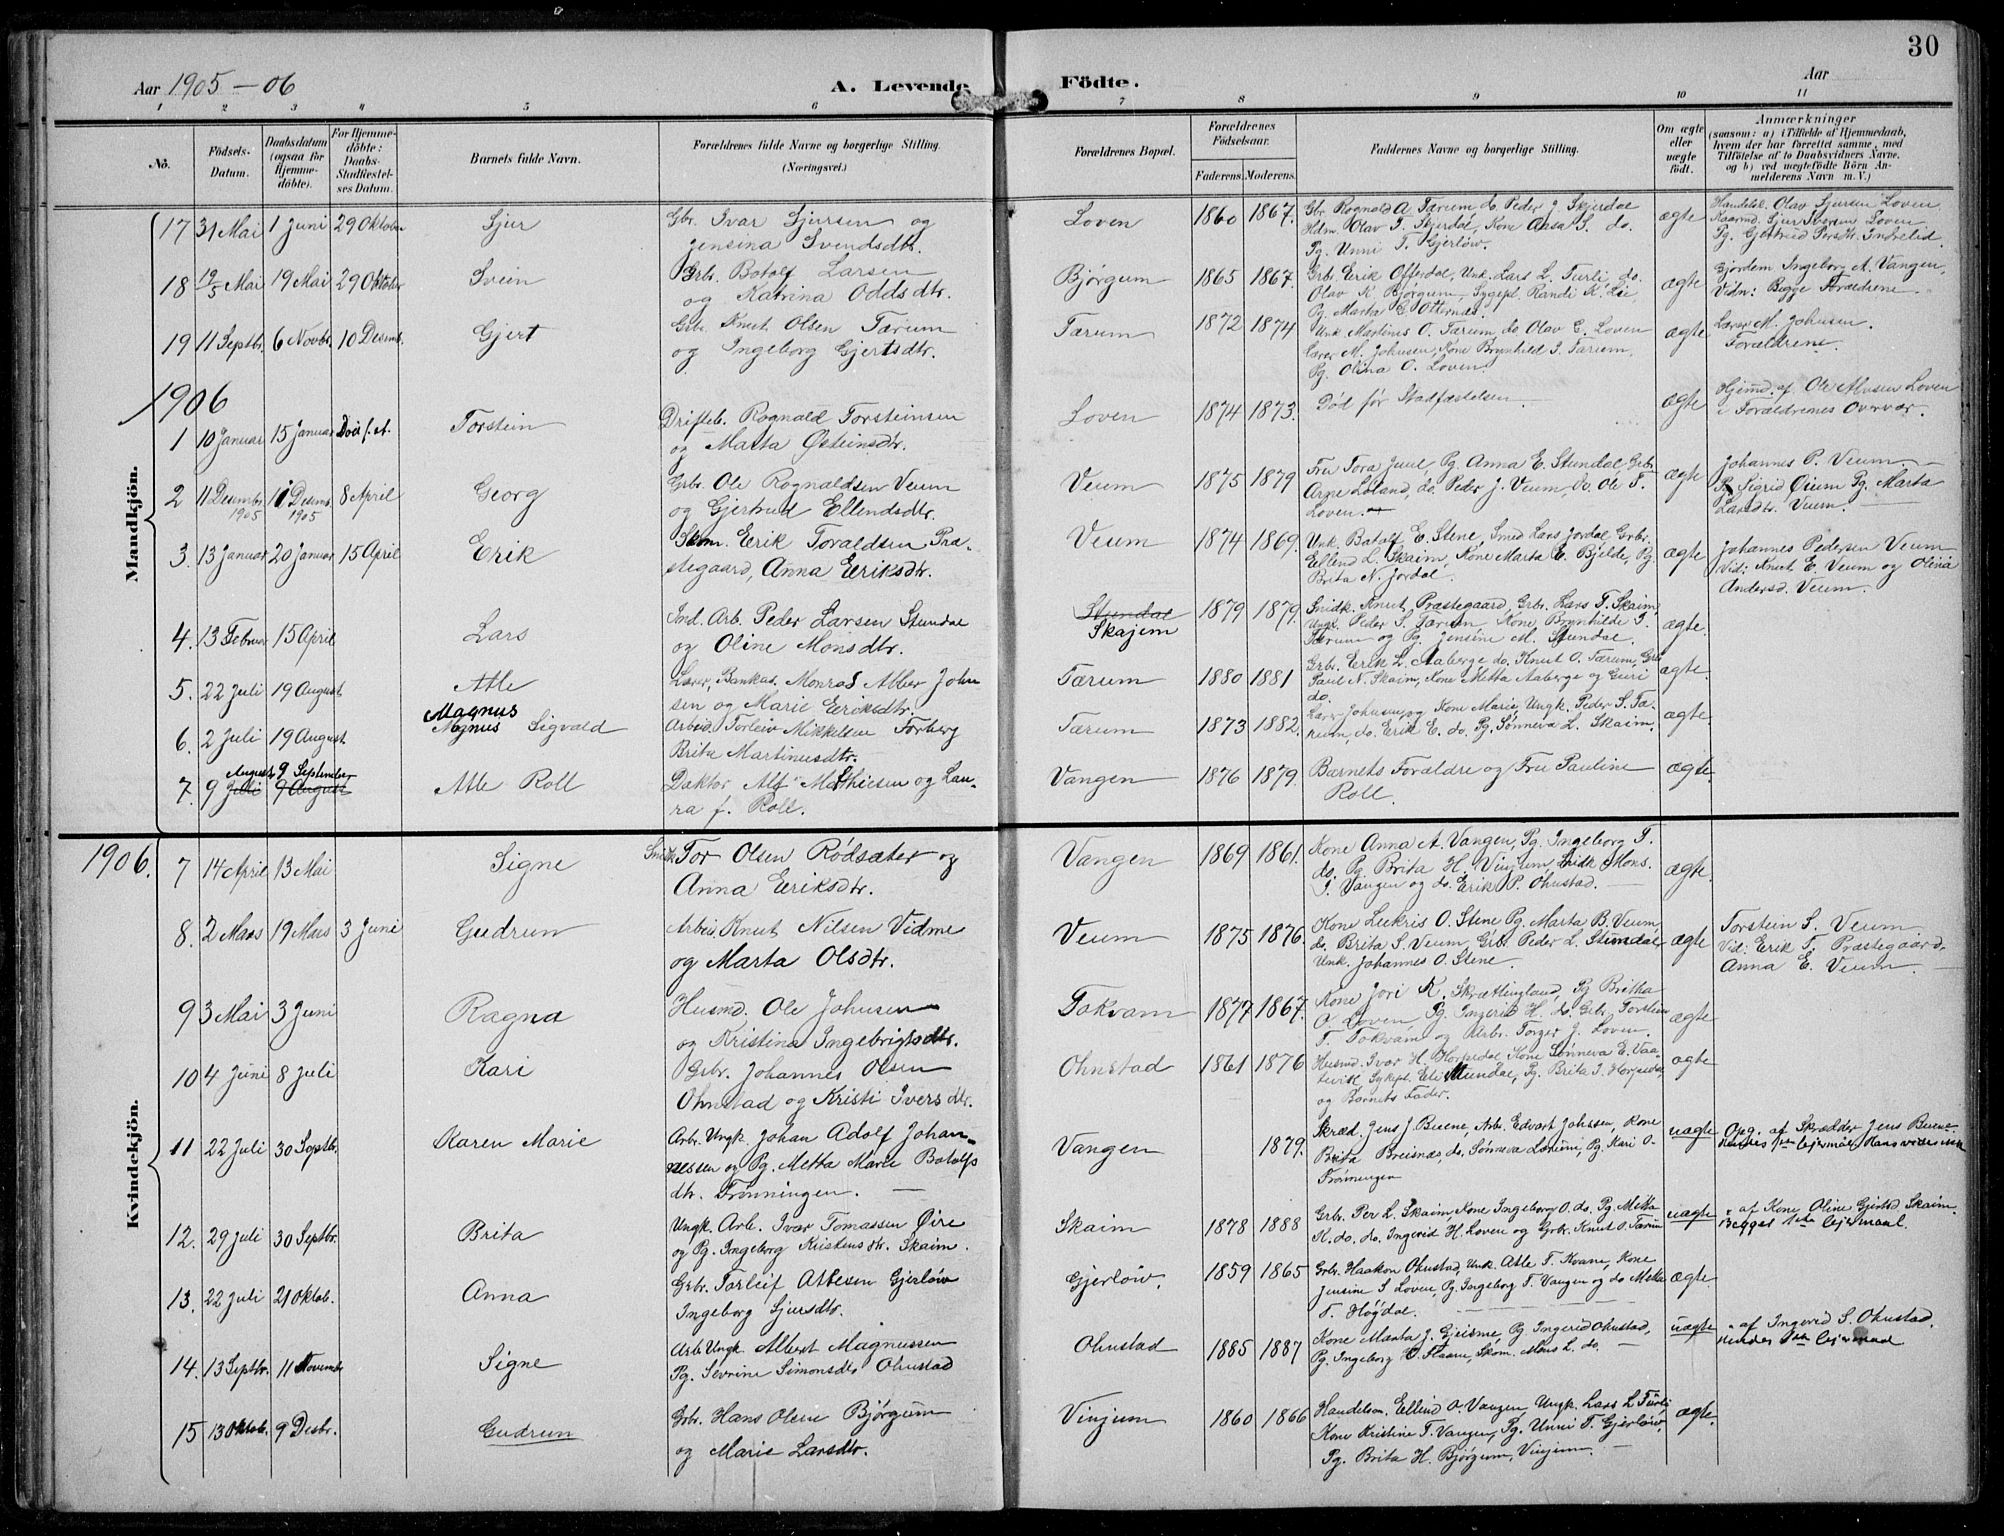 30
Aar 1905-06 A. Levende Födte. Aar
1 2 3 4 5 6 7 8 9 10 11
No. Födsels-Datum. Daabsdatum (ogsaa for Hjemme-döbte). For Hjemme-döbte: Daabs-Stadfæstel-ses Datum. Barnets fulde Navn. Forældrenes fulde Navne og borgerlige Stilling. (Næringsvei.) Forældrenes Bopæl. Forældrenes Födselsaar. Faderens. Moderens. Faddernes Navne og borgerlige Stilling. Om ægte eller uægte födt. Anmærkninger (saasom: a) i Tilfælde af Hjemmedaab, hvem der har forrettet samme, med Tilföielse af to Daabsvidners Navne, og b) ved uægtefödte Börn An-melderens Navn m. V.)
Mandkjön.
17 31 Mai 1 Juni 29 Oktober Sjur Gbr. Ivar Sjursen og Loven 1860 1867. Gbr. Rognald A. Tærum do Peder J. Skjerdal ægte Handelsk. Olav Sjursen Loven.
Jensina Svendsdtr. Hdm. Olav J. Skjerdal, Kone Aasa S. do. Kaarmd. Sjur Iversen Loven
Pg. Unni T. Gjerløw. Pg. Gjertrud Persdtr. Indrelid.
18 19/5 Mai 19 Mai 29 Oktober Svein Gbr. Botolf Larsen Bjørgum 1865 1867. Gbr. Erik Offerdal, Unk. Lars L. Turli, do. ægte Gjordem. Ingeborg A. Vangen,
og Katrina Oddsdtr. Olav K. Bjørgum, Sygepl. Randi K. Lie, Vidn: Begge Forældrene
Pg. Marta E. Otternes.
19 11 Septbr. 6 Novbr. 10 Desemb. Gjert Gbr. Knut Olsen Tærum Tærum 1872 1874 Unk. Martines O. Tærum, do Olav E. Loven ægte Lærer M. Johnsen.
og Ingeborg Gjertsdtr. Lærer M. Johnsen, Kone Brynhild I. Tærum. Forældrene.
Pg. Olina O. Loven
1906
1 10 Januar 15 Januar Død f. st. Torstein Drifteb. Rognald Torsteinsen Loven 1874 1873. Død før Stadfæstelsen ægte Hjemd. af Ole Alvsen Loven
og Marta Østeinsdtr. i Forældrenes Overvær.
2 11 Desember 1905 11 Desemb. 1905 8 April Georg Gbr. Ole Rognaldsen Veum Veum 1875 1879 Fru Tora Juul, Pg. Anna E. Stundal, Gbr. ægte Johannes P. Veum.
og Gjertrud Ellendsdtr. Arne Loland, do. Peder J. Veum, do. Ole T. Pg. Sigrid Øium Pg. Marta
Loven. Larsdtr. Veum.
3. 13 Januar 20 Januar 15 April Erik Skom. Erik Toraldsen Præ- Veum 1874 1869. Unk. Batolf E. Stene, Smed Lars Jordal Gbr. ægte Johannes Pedersen Veum
stegaard, Anna Eriksdtr. Ellend L. Skaim, Kone Marta E. Bjelde, Pg. Vid: Knut E. Veum og Olina
Brita N. Jordal. Andersd. Veum.
4. 13 Februar 15 April Lars Ind. Arb. Peder Larsen Stundal Stundal 1879 1879. Snidk. Knut Præstegaard, Grbr. Lars T. Skaim, ægte.
og Oline Monsdtr. Skajem Ungk. Peder S. Tærum Kone Brynhilde I.
Tærum og Pg. Jensine M. Stundal.
5. 22 Juli 19 August Atle Lærer, Bankas. Monrad Alber John Tærum 1880 1881 Grbr. Erik L. Aaberge do. Knut O. Tærum, Grbr ægte
sen og Marie Eriksdtr. Paul N. Skaim, Kone Metta Aaberge og Guri do
6. 2 Juli 19 August Magnus Magnus Sigvald Arbeid. Torleiv Mikkelsen Forberg Tærum 1873 1882. Lærer Johnsen og Kone Marie, Ungk. Peder S. Tæ- ægte
Brita Martinusdtr. rum, do. Erik E. do. Pg. Sønneva L. Skaim.
7. 9 Juli August 9 August 9 September Atle Roll Doktor Alf Mathiesen og Lau- Vangen 1876 1879. Barnets Forældre og Fru Pauline ægte.
ra f. Roll. Roll.
Kvindekjön.
1906. 7 14 April 13 Mai Signe Snidk. Tor Olsen Rödsæter og Vangen 1869 1861. Kone Anna A. Vangen, Pg. Ingeborg T. ægte.
Anna Eriksdtr. do. Pg. Brita H. Vinjum, Snidk Mons.
J. Vangen og do. Erik P. Ohnstad.
8. 2 Mars 19 Mars 3 Juni Gudrun Arbeid. Knut Nilsen Vidme Veum 1875 1876. Kone Leikris O. Stene Pg. Marta B. Veum, ægte Torstein S. Veum
og Marta Olsdtr. do. Brita S. Veum, Grbr. Peder L. Stundal Vid: Erik T. Præstegaard,
Unk. Johannes O. Stene. Anna E. Veum.
9 3 Mai 3 Juni Ragna Husmd. Ole Johnsen Tokvam 1877 1867. Kone Jori K. Skrætlingland, Pg Britha ægte
og Kristina Ingebrigtsdtr. O. Loven Pg. Ingerid H. do. Grbr. Torstein
T. Tokvam og Arbr. Torger J. Loven.
10 4 Juni 8 Juli Kari Grbr. Johannes Olsen Ohnstad 1861 1876 Husmd. Ivar H. Horpedal, Kone Sønneva E. ægte
Ohnstad og Kristi Ivers dtr. Sykepl. Eli Stundal, Pg. Brita I. Horpedal,
og Barnets Fader.
11 22 Juli 30 Septbr. Karen Marie Arbr. Ungk. Johan Adolf Johan- Vangen 1879. Skræd. Jens J. Buene, Arb. Edvart Johnsen, Kone uægte Opg. af Skrædder Jens Buene.
nessen og Pg. Metta Marie Botolfs Brita Breisnes, do. Sønneva Lærum, Pg. Kari O. Hendes 1ste Leiermaal,
dtr. Frønningen. Frønningen
12. 29 Juli 30 Septbr. Brita Ungk. Arb. Ivar Tomassen Øire Skaim 1878 1888 Grbr. Per L. Skaim, Kone Ingeborg O. do. Pg. Metta uægte " af Kone Oline Gjertsd Skaim.
og Pg. Ingeborg Kristensdtr. Skaim. K. do. do. Ingerid H. Loven og Grbr. Knut O. Tærum Begges 1ste Lejermaal.
13. 22 Juli 21 Oktob. Anna Grbr. Torleif Attesen Gjerløw Gjerløw. 1859 1865 Grbr. Haakon Ohnstad, Unk. Atle T. Kvam, Kone ægte
Ingeborg Sjursdtr. Jensine S Loven, Pg. Ingeborg T. Vangen og do Metta
T. Høgdal.
14. 13 Septbr. 11 Novemb Signe Arb Ungk. Albert Magnussen Ohnstad 1885 1887 Kone Marta J. Gjeisme, Pg. Ingerid Ohnstad, uægte " af Ingerid S. Ohnstad.
Pg. Sevrine Simonsdtr Ohnstad Pg. Ingeborg O. Flaam, Skom. Mons L. do. Hendes 1ste Lejermaal
15 13 Oktob. 9 Desbr. Gudrun Grbr. Hans Olsen Bjørgum Vinjum 1860 1866 Handelsm. Ellend O. Vangen, Ungk. Lars L Turli ægte.
og Marie Larsdtr. Kone Kristine T. Vangen, Pg. Unni T. Gjerløw,
Pg. Brita H. Bjørgum, Vinjum.